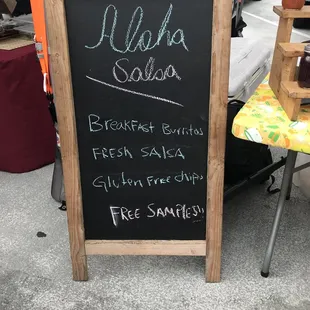 Aloha
Salsa
Breakfast Burritos
FRESH SALSA
Gluten Free chips
FREE SAMPLES!!